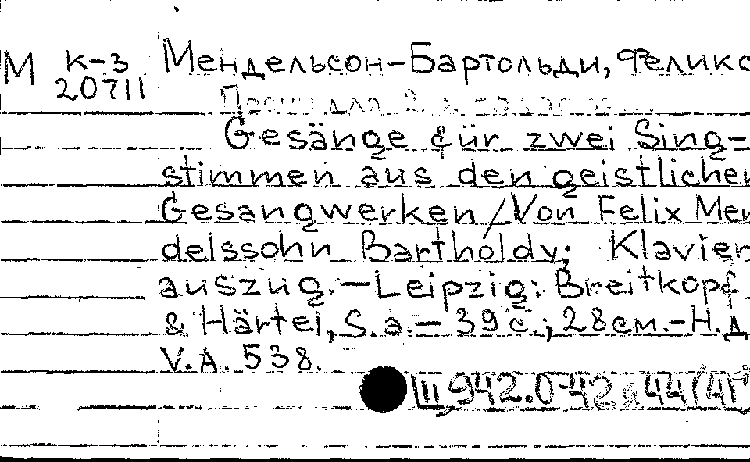 М к-3 Мендельсон-Бартольди, Феликс
20711
для 2 х
Gesänge für zwei Sing-
stimmen aus den geistlichen
Gesangwerken / Von Felix Men
delssohn Bartholdy; Klavier
auszug. — Leipzig: Breitkopf
& Härtel, S. a. — 39 с.; 28 см. — Н. д
V. A. 538.
Ш 942.0-42 я 44 (4Г